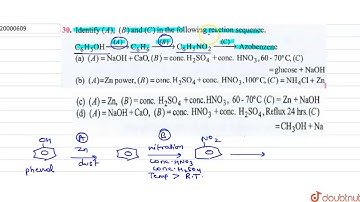 20000609
30. Identify (A), (B) and (C) in the following reaction sequence.
C₆H₅OH (A) C₆H₆ (B) C₆H₅NO₂ (C) Azobenzene
(a) (A) = NaOH + CaO, (B) = conc. H₂SO₄ + conc. HNO₃, 60 - 70°C, (C)
= glucose + NaOH
(b) (A) = Zn power, (B) = conc. H₂SO₄ + conc. HNO₃, 100°C, (C) = NH₄Cl + Zn
(c) (A) = Zn, (B) = conc. H₂SO₄ + conc. HNO₃, 60 - 70°C (C) = Zn + NaOH
(d) (A) = NaOH + CaO, (B) = conc. HNO₃ + conc. H₂SO₄, Reflux 24 hrs. (C)
= CH₃OH + Na
OH (A) (B) NO₂
Zn nitration
dust conc. HNO₃
phenol conc. H₂SO₄
Temp > R.T.
doubtnut